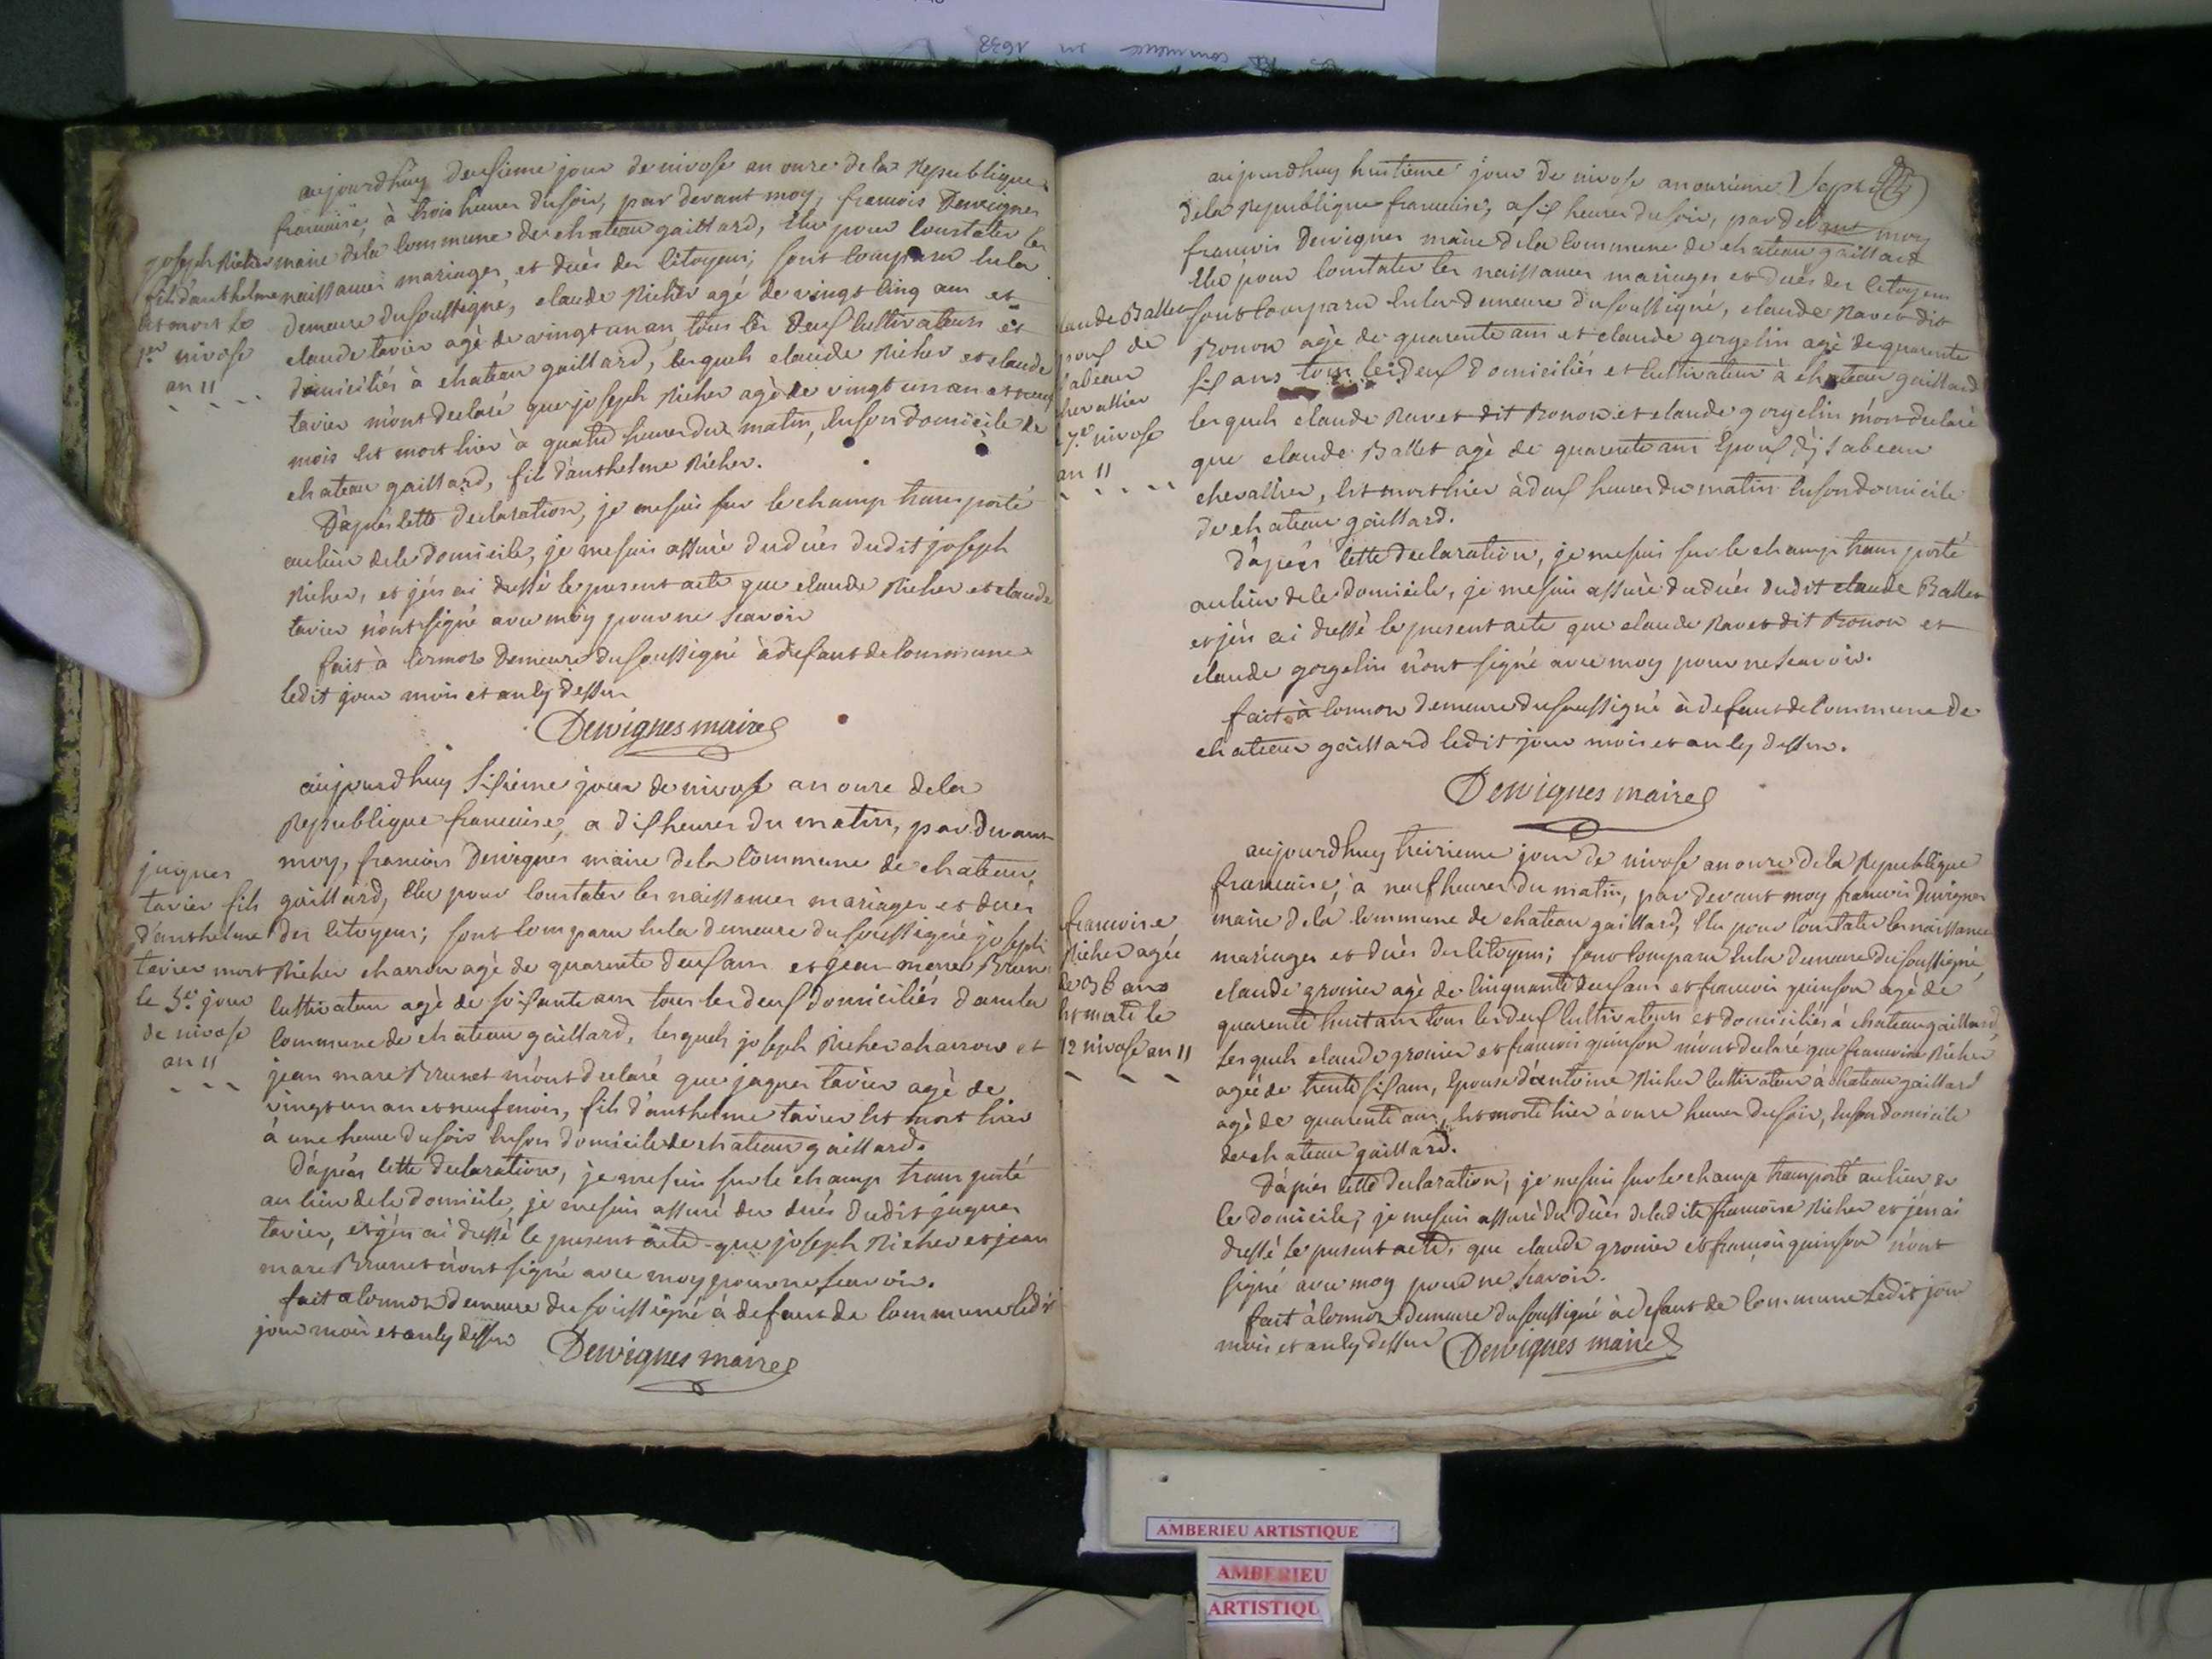 commence en 1638
aujourdhuy deusieme jour de nivose an onze de la Republique
francaise, à trois heures du soir, par devant moy, francois Dewignes
maire dela Commune de chateau gaillard, Elu pour Constater les
naissances mariages et décès des Citoyens; sont Comparu en la
demeure du soussigné, claude Richer agé de vingt Cinq ans et
claude tavier agé de vingt un an, tous les deux Cultivateurs et
domiciliés à chateau gaillard, lesquels claude Richer et claude
tavier m'ont declaré que joseph Richer agé de vingt un an et neuf
mois Est mort hier à quatre heures du matin, En son domicile de
chateau gaillard, fils d'anthelme Richer.
D'après Cette declaration, je me suis sur le champ transporté
au lieu de Ce domicile, je me suis assuré du décès dudit joseph
Richer, et j'en ai dressé le present acte que claude Richer et claude
tavier n'ont signé avec moy pour ne scavoir
fait à demeure du soussigné à defaut de Commune
ledit jour mois et an cy dessus
Dewignes maire
joseph Richer
fils d'anthelme
Est mort Le
1er nivose
an 11
aujourdhuy sixième jour de nivose an onze dela
Republique francaise, a dix heures du matin, par devant
moy, francois Dewignes maire dela Commune de chateau
gaillard, Elu pour Constater les naissances mariages et décès
des Citoyens; sont Comparu En la demeure du soussigné joseph
Richer charron agé de quarente deux ans et jean marie Brunet
Cultivateur agé de soisante ans tous les deux domiciliés dans la
Commune de chateau gaillard, lesquels joseph Richer charron et
jean marie Brunet m'ont declaré que jaques tavier agé de
vingt un an et neuf mois, fils d'anthelme tavier Est mort hier
à une heure du soir En son domicile de chateau gaillard.
D'après Cette declaration, je me suis sur le champ transporté
au lieu de Ce domicile, je me suis assuré du décès dudit jaques
tavier, et j'en ai dressé le present acte que joseph Richer et jean
marie Brunet n'ont signé avec moy pour ne scavoir.
fait a Cormoz demeure du soussigné à defaut de Commune ledit
jour mois et an cy dessus Dewignes maire
jaques
tavier fils
d'anthelme
tavier mort
le 5e jour
de nivose
an 11
aujourdhuy huitieme jour de nivose an onzième Sept
dela Republique francaise, a six heures du soir, par devant moy
francois Dewignes maire dela Commune de chateau gaillard
Elu pour Constater les naissances mariages et décès des Citoyens
sont Comparu En la demeure du soussigné, claude Ravet dit
Ronon agé de quarente ans et claude gorgelin agé de quarente
six ans tous les deux domiciliés et Cultivateur à chateau gaillard
lesquels claude Ravet dit Ronon et claude gorgelin m'ont declaré
que claude Ballet agé de quarente ans Epoux d'ysabeau
chevallier, Est mort hier à deux heures du matin En son domicile
de chateau gaillard.
D'après Cette declaration, je me suis sur le champ transporté
au lieu de Ce domicile, je me suis assuré du décès dudit claude Ballet
et j'en ai dressé le present acte que claude Ravet dit Ronon et
claude gorgelin n'ont signé avec moy pour ne scavoir.
fait à Cormoz demeure du soussigné à defaut de Commune de
chateau gaillard ledit jour mois et an cy dessus.
Dewignes maire
laude Ballet
poux de
sabeau
hevallier
7e nivose
an 11
aujourdhuy treizieme jour de nivose an onze dela Republique
francaise, à neuf heures du matin, par devant moy francois Dewignes
maire dela Commune de chateau gaillard, Elu pour Constater les naissances
mariages et décès des Citoyens; sont Comparu En la demeure du soussigné,
claude gronier agé de Cinquante deux ans et francois quinson agé de
quarente huit ans tous les deux Cultivateurs et domiciliés à chateau gaillard,
Lesquels claude gronier et francois quinson m'ont declaré que francoise Richer
agée de trente six ans, Epouse d'antoine Richer Cultivateur à chateau gaillard
agé de quarente ans, Est morte hier à onze heures du soir, En son domicile
de chateau gaillard.
D'après Cette declaration, je me suis sur le champ transporté au lieu de
Ce domicile, je me suis assuré du décès de ladite francoise Richer et j'en ai
dressé Le present acte, que claude gronier et francois quinson n'ont
signé avec moy pour ne scavoir.
fait à Cormoz demeure du soussigné à defaut de Commune Ledit jour
mois et an cy dessus Dewignes maire
francoise
Richer agée
de 36 ans
Est morte le
12 nivose an 11
AMBERIEU ARTISTIQUE
AMBERIEU
ARTISTIQU